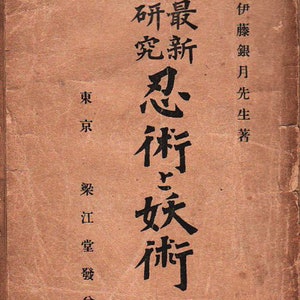 伊藤銀月先生著
最新
研究
忍術と妖術
東京 梁江堂發